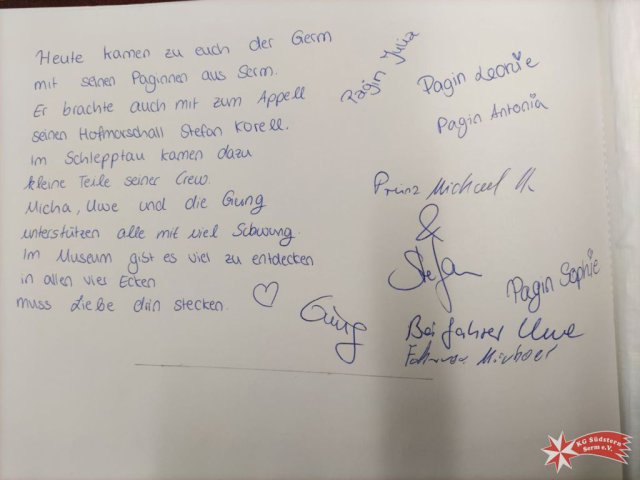 Heute kamen zu euch der Germ
mit seinen Paginnen aus Serm.
Er brachte auch mit zum Appell
seinen Hofmarschall Stefan Korell.
Im Schlepptau kamen dazu
kleine Teile seiner Crew.
Micha, Uwe und die Gung
unterstützen alle mit viel Schwung.
Im Museum gibt es viel zu entdecken
in allen vier Ecken
muss Liebe drin stecken.
Pagin Julia
Pagin Leonie
Pagin Antonia
Prinz Michael
&
Stefan
Pagin Sophie
Gung
Beifahrer Uwe
KG Südstern
Serm e.V.